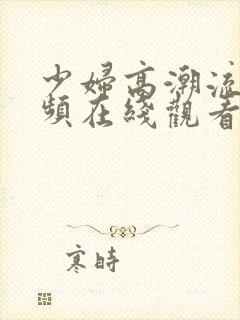 少婦高潮流
頻在綫觀看
寒時